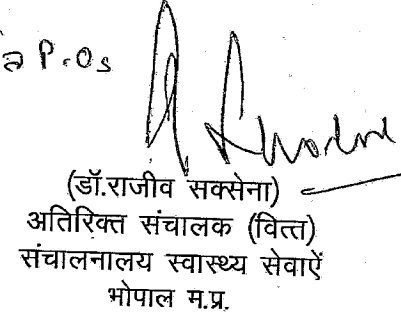 P.Os
(डॉ.राजीव सक्सेना)
अतिरिक्त संचालक (वित्त)
संचालनालय स्वास्थ्य सेवाऐं
भोपाल म.प्र.